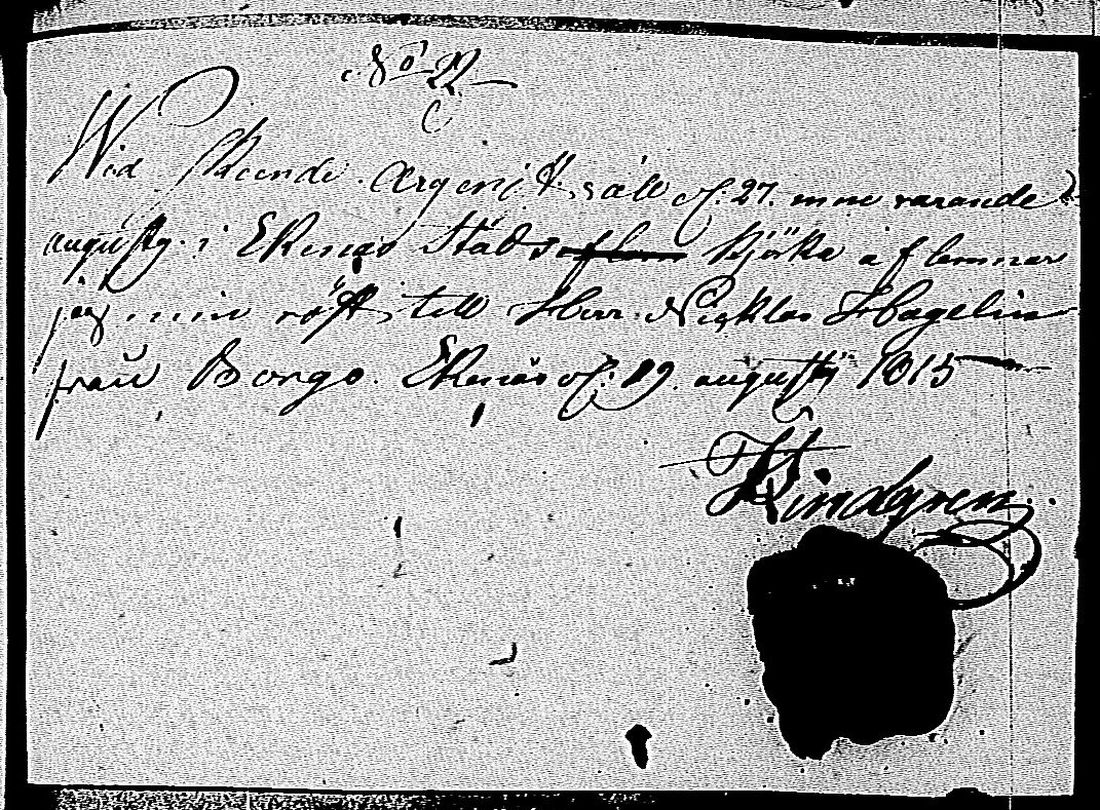 No 22
C
Wid skeende Argenist val d: 27. inne varande
augusty i Ekenäs Stads aflem Kjörka aflemnar
jag min röst till Herr Nicklas Hagelin
från Borgo. Ekenäs d: 19. augusty 1815
Lindgren